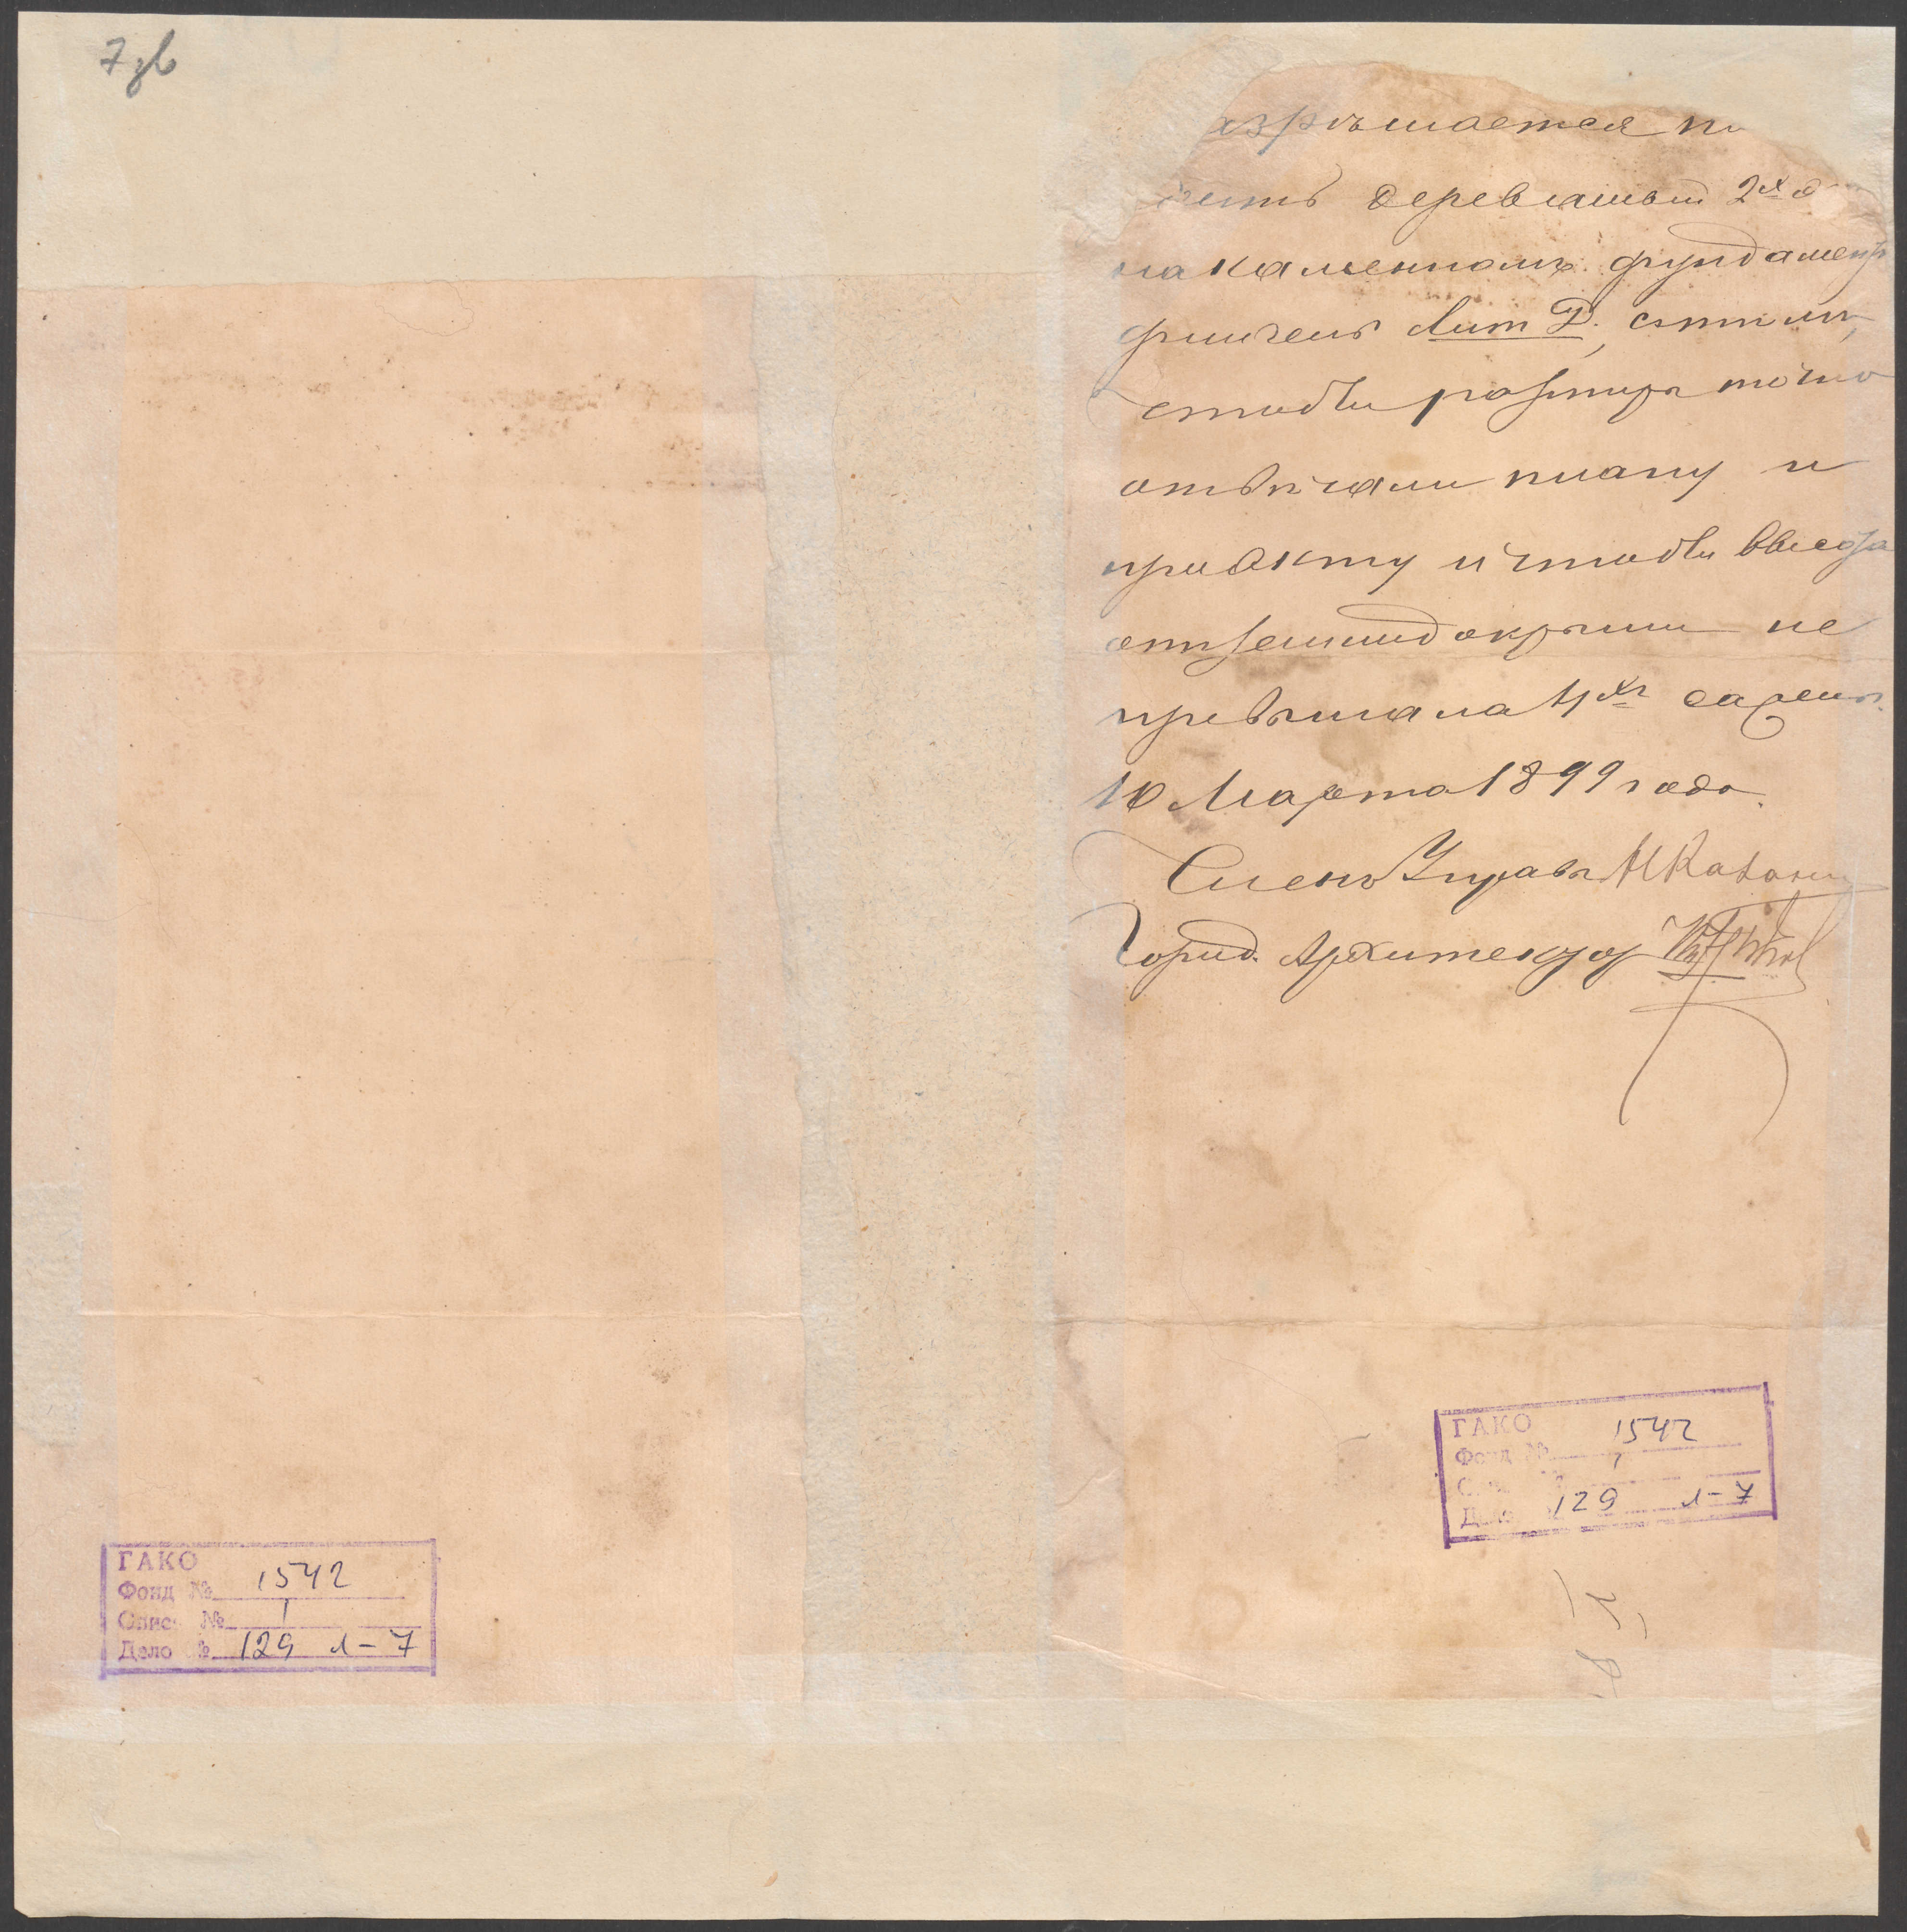 7 зв
азрѣшается по
деревянный 2х э
на каменномъ фундамент
флигель Лит Д., съ тѣмъ,
чтобы размѣры точно
отвѣчали плану и
проэкту и чтобы высота
отъ земли до крыши не
превышала 4хъ сажень.
10 Марта 1899 года.
Членъ Управы
Город. Архитектор
ГАКО
Фонд № 1542
Опис № 1
Дело № 129 л-7
ГАКО
Фонд № 1542
1
Дело 129 л-7